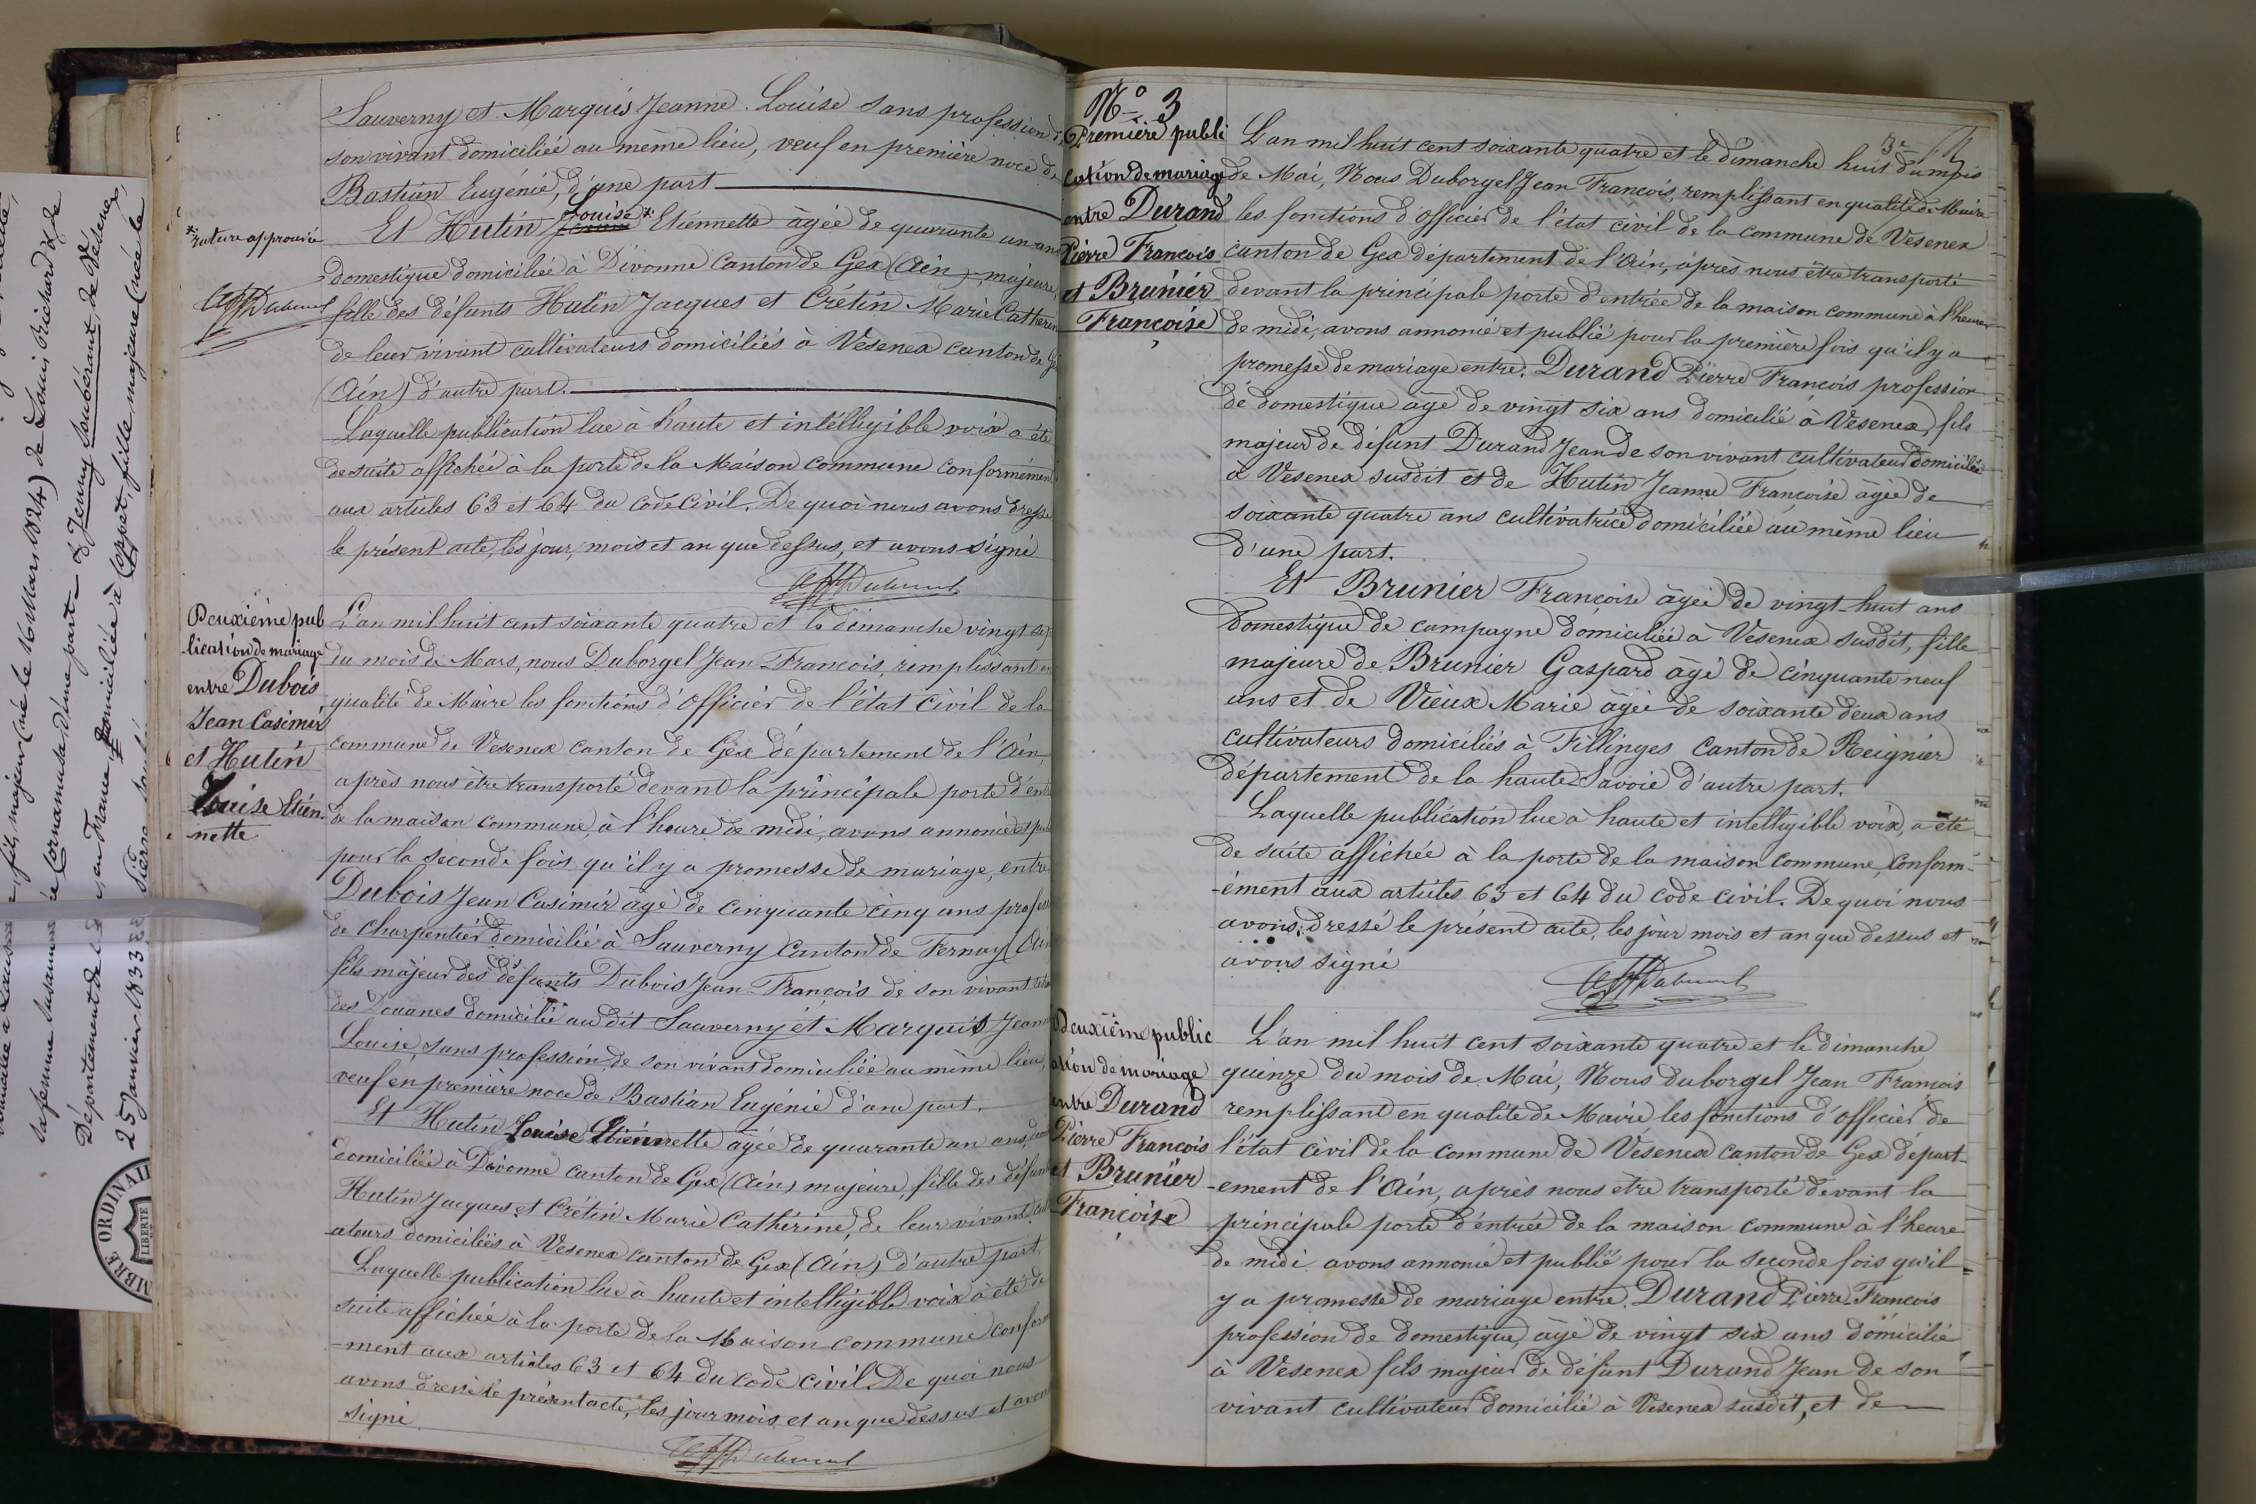 Sauverny et Marquis Jeanne Louise sans profession de
son vivant domiciliée au même lieu, veuf en première noce de
Bastian Eugénie, d'une part
Et Hutin Louise * Etiennette âgée de quarante un ans
domestique domiciliée à Divonne Canton de Gex (Ain), majeure,
fille des défunts Hutin Jacques et Crétin Marie Catherine
de leur vivant cultivateurs domiciliés à Vesenex canton de Gex
(Ain) d'autre part.
* rature approuvée
Laquelle publication lue à haute et intélligible voix a été
de suite affichée à la porte de la Maison commune conformément
aux articles 63 et 64 du code Civil. De quoi nous avons dressé
le présent acte, les jour, mois et an que dessus, et avons signé
Deuxième pub
lication de mariage
entre Dubois
Jean Casimir
et Hutin
Louise Etien-
nette
L'an mil huit cent soixante quatre et le dimanche vingt sept
du mois de Mars, nous Duborgel Jean François, remplissant en
qualité de Maire les fonctions d'Officier de l'état Civil de la
commune de Vesenex canton de Gex département de l'Ain,
après nous être transporté devant la principale porte d'entrée
de la maison commune, à l'heure de midi, avons annoncé et publié
pour la seconde fois qu'il y a promesse de mariage, entre
Dubois Jean Casimir âgé de cinquante cinq ans profession
de Charpentier domicilié à Sauverny Canton de Fernay (Ain
fils majeur des défunts Dubois Jean François de son vivant
des Douanes domicilié au dit Sauverny et Marquis Jeanne
Louise, sans profession de son vivant domiciliée au même lieu,
veuf en première noce de Bastian Eugénie d'une part.
Et Hutin Louise Etiennette âgée de quarante un ans,
domiciliée à Divonne canton de Gex (Ain) majeure, fille des défunts
Hutin Jacques et Crétin Marie Cathérine, de leur vivant cultiv
ateurs domiciliés à Vesenex canton de Gex (Ain) d'autre part.
Laquelle publication lue à haute et intelligible voix à été de
suite affichée à la porte de la Maison commune conformé
-ment aux articles 63 et 64 du code civil. De quoi nous
avons dressé le présent acte, les jour mois et an que dessus et avons
signé
N° 3
Première publi
cation de mariage
entre Durand
Pierre François
et Brunier
Françoise
L'an mil huit cent soixante quatre et le dimanche huit du mois
de Mai, Nous Duborgel Jean François, remplissant en qualité de Maire
les fonctions d'officier de l'état civil de la commune de Vesenex
canton de Gex département de l'Ain, après nous être transporté
devant la principale porte d'entrée de la maison commune à l'heure
de midi, avons annoncé et publié pour la première fois qu'il y a
promesse de mariage entre. Durand Pierre François profession
de domestique âgé de vingt six ans domicilié à Vesenex, fils
majeur de défunt Durand Jean de son vivant cultivateur domicilié
à Vesenex susdit et de Hutin Jeanne Françoise âgée de
soixante quatre ans cultivatrice domiciliée au même lieu
d'une part.
Et Brunier Françoise âgée de vingt-huit ans
domestique de campagne domiciliée à Vesenex susdit, fille
majeure de Brunier Gaspard âgé de cinquante neuf
ans et de Vieux Marie âgée de soixante deux ans
cultivateurs domiciliés à Fillinges Canton de Reignier
département de la haute Savoie d'autre part.
Laquelle publication lue à haute et intelligible voix, a été
de suite affichée à la porte de la maison commune, conform-
-ément aux articles 63 et 64 du code civil. De quoi nous
avons dressé le présent acte, les jour mois et an que dessus et
avons signé
Deuxième public
ation de mariage
entre Durand
Pierre François
et Brunier
Françoise
L'an mil huit cent soixante quatre et le dimanche
quinze du mois de Mai, Nous duborgel Jean François
remplissant en qualité de Maire les fonctions d'officier de
l'état civil de la commune de Vésenex canton de Gex départ-
-ement de l'Ain, après nous être transporté devant la
principale porte d'entrée de la maison commune à l'heure
de midi avons annoncé et publié pour la seconde fois qu'il
y a promesse de mariage entre. Durand Pierre-François
profession de domestique, âgé de vingt six ans domicilié
à Vesenex fils majeur de défunt Durand Jean de son
vivant cultivateur domicilié à Vesenex susdit, et de